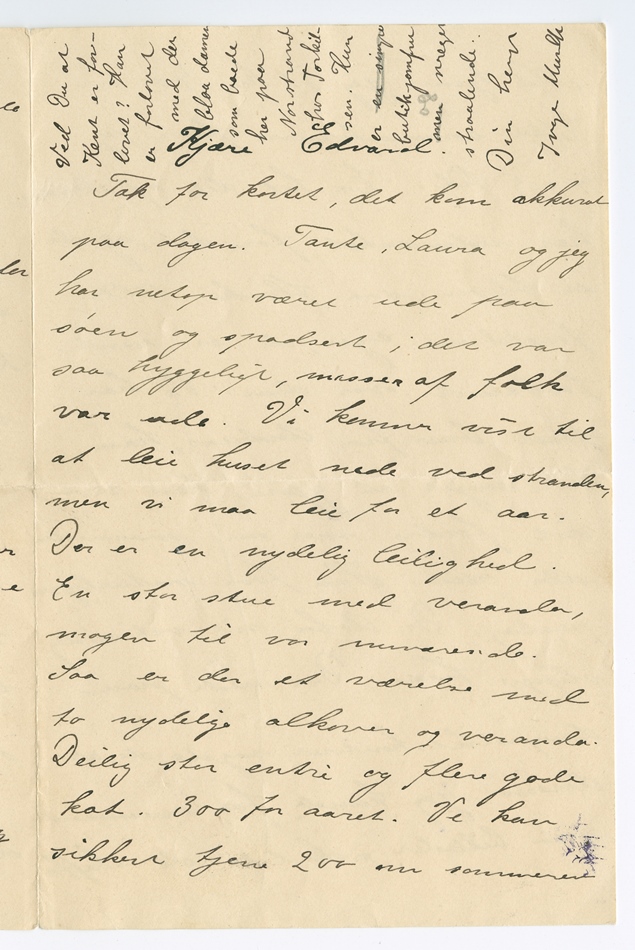 Kjære Edvard.
Tak for kortet, det kom akkurat
paa dagen. Tante, Laura og jeg
har netop været ude paa
søen og spadsert, det var
saa hyggeligt, masser af folk
var ude. Vi kommer vist til
at leie huset nede ved stranden,
men vi maa leie for et aar.
Der er en nydelig leilighed.
En stor stue med veranda,
magen til vor nuværende.
Saa er der et værelse med
to nydelige alkover og veranda.
Deilig stor entré og flere gode
kot. 300 for aaret. Vi kan
sikkert tjene 200 om sommeren
Ved Du at
Knut er for-
lovet? Han
er forlovet
med den
blaa damen
som boede
her paa
Nordstrand
hos Torkil-
sen. Hun
er en simpel
butikjomfru
men meget
straalende.
Din
Inga